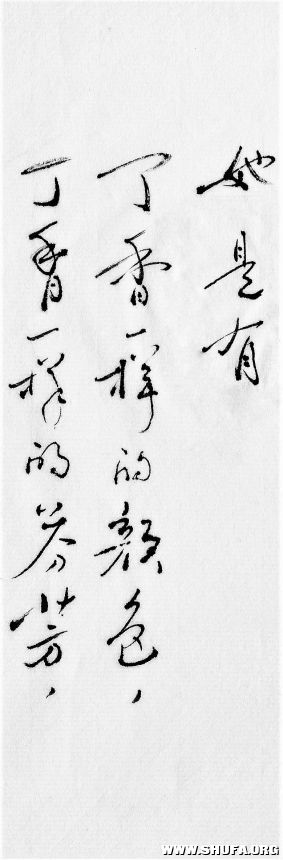 她是有
丁香一样的颜色，
丁香一样的芬芳，
WWW.SHUFA.ORG